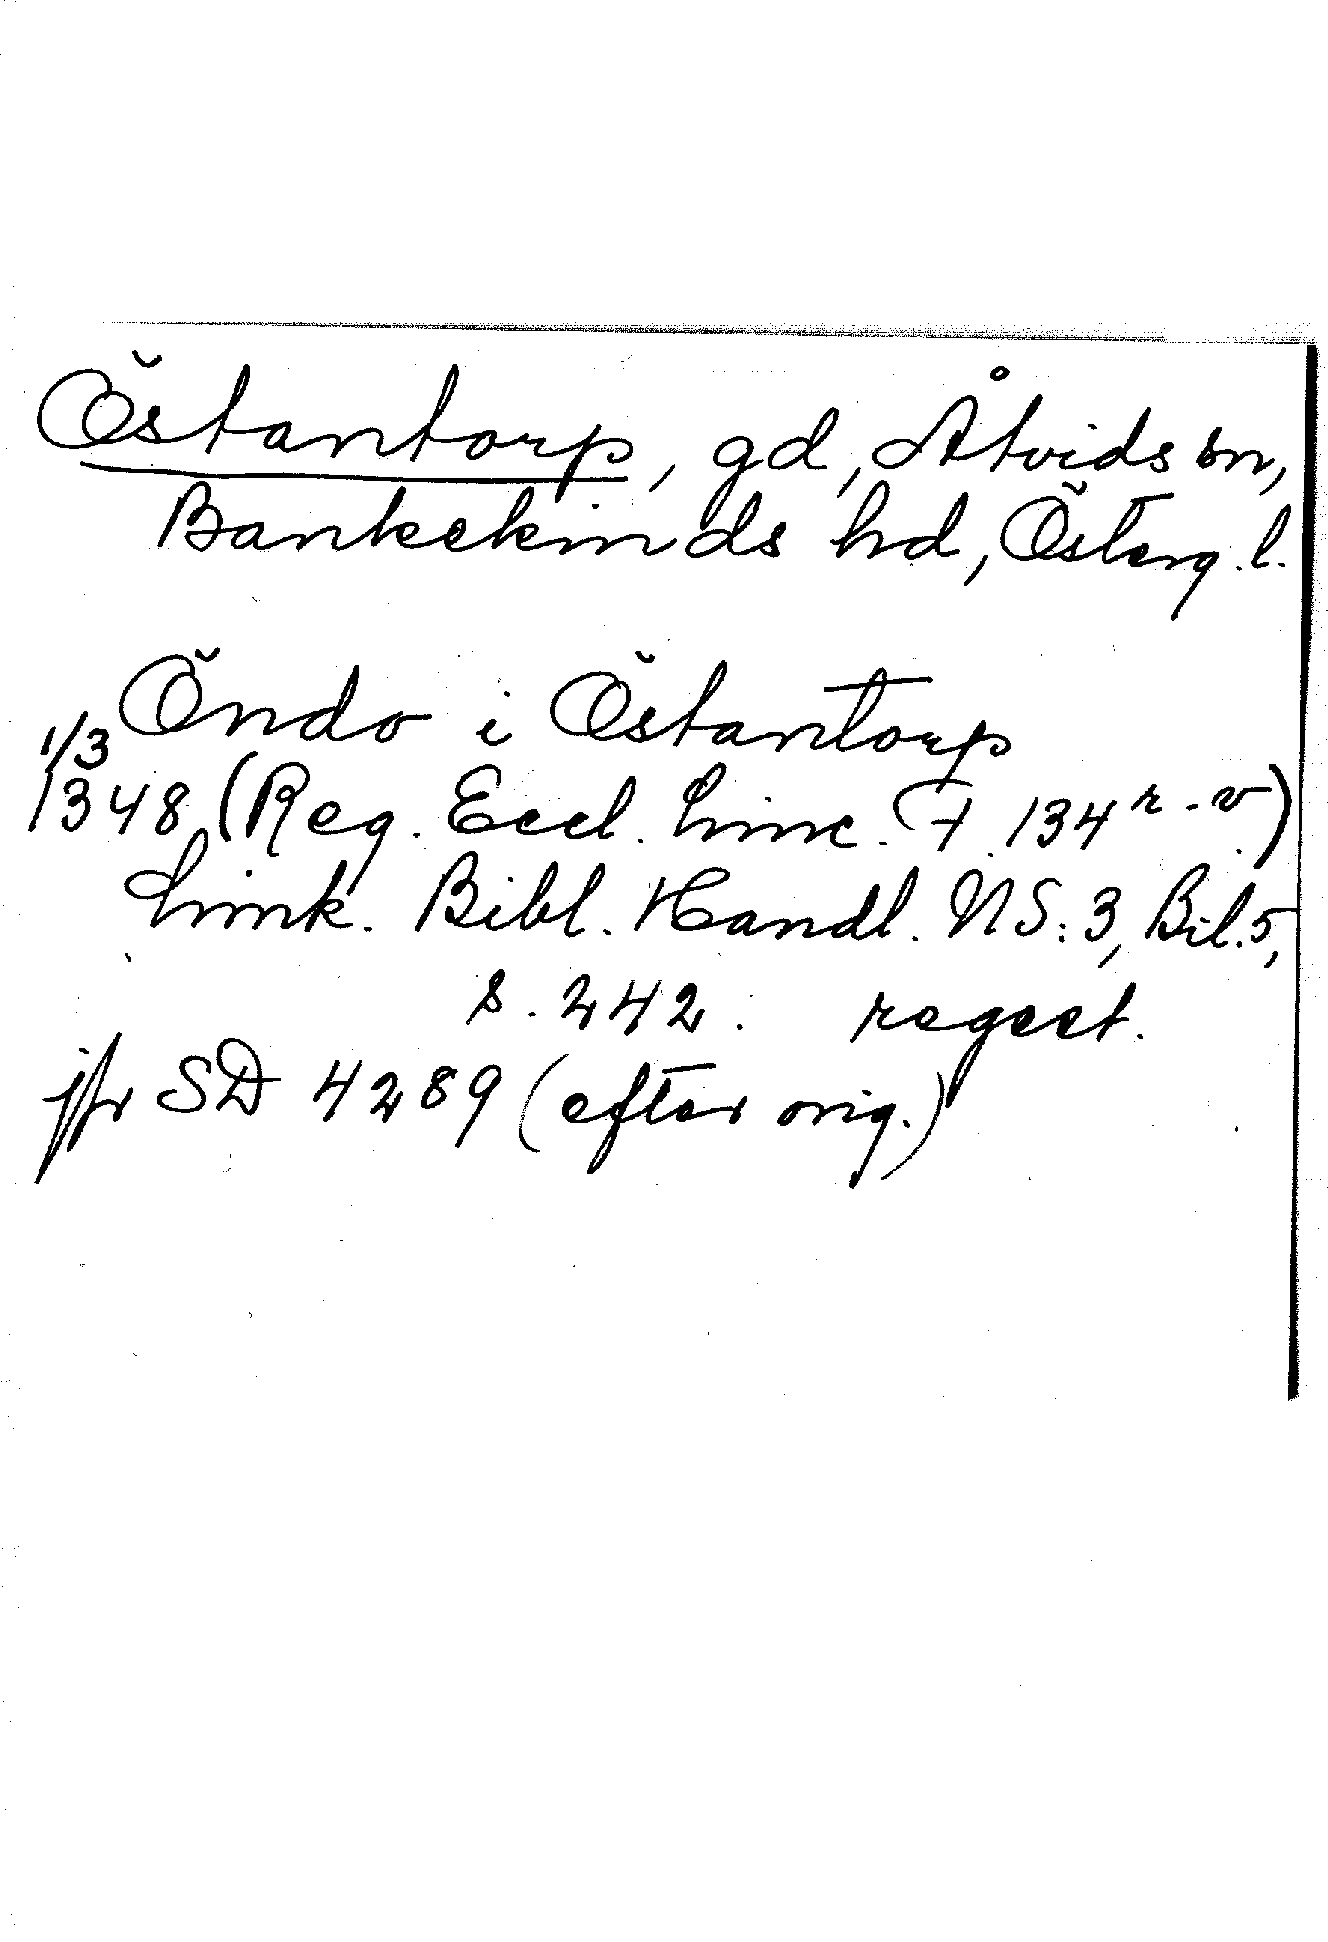 Östantorp, gd, Åtvids sn,
Bankekinds hd, Österg. l.
Öndo i Östantorp
1/3
1348 (Reg. Eccl. Linc. F. 134 r-v)
Link. Bibl. Handl. NS: 3, Bil. 5,
s. 242. regest.
jfr SD 4289 (efter orig.)